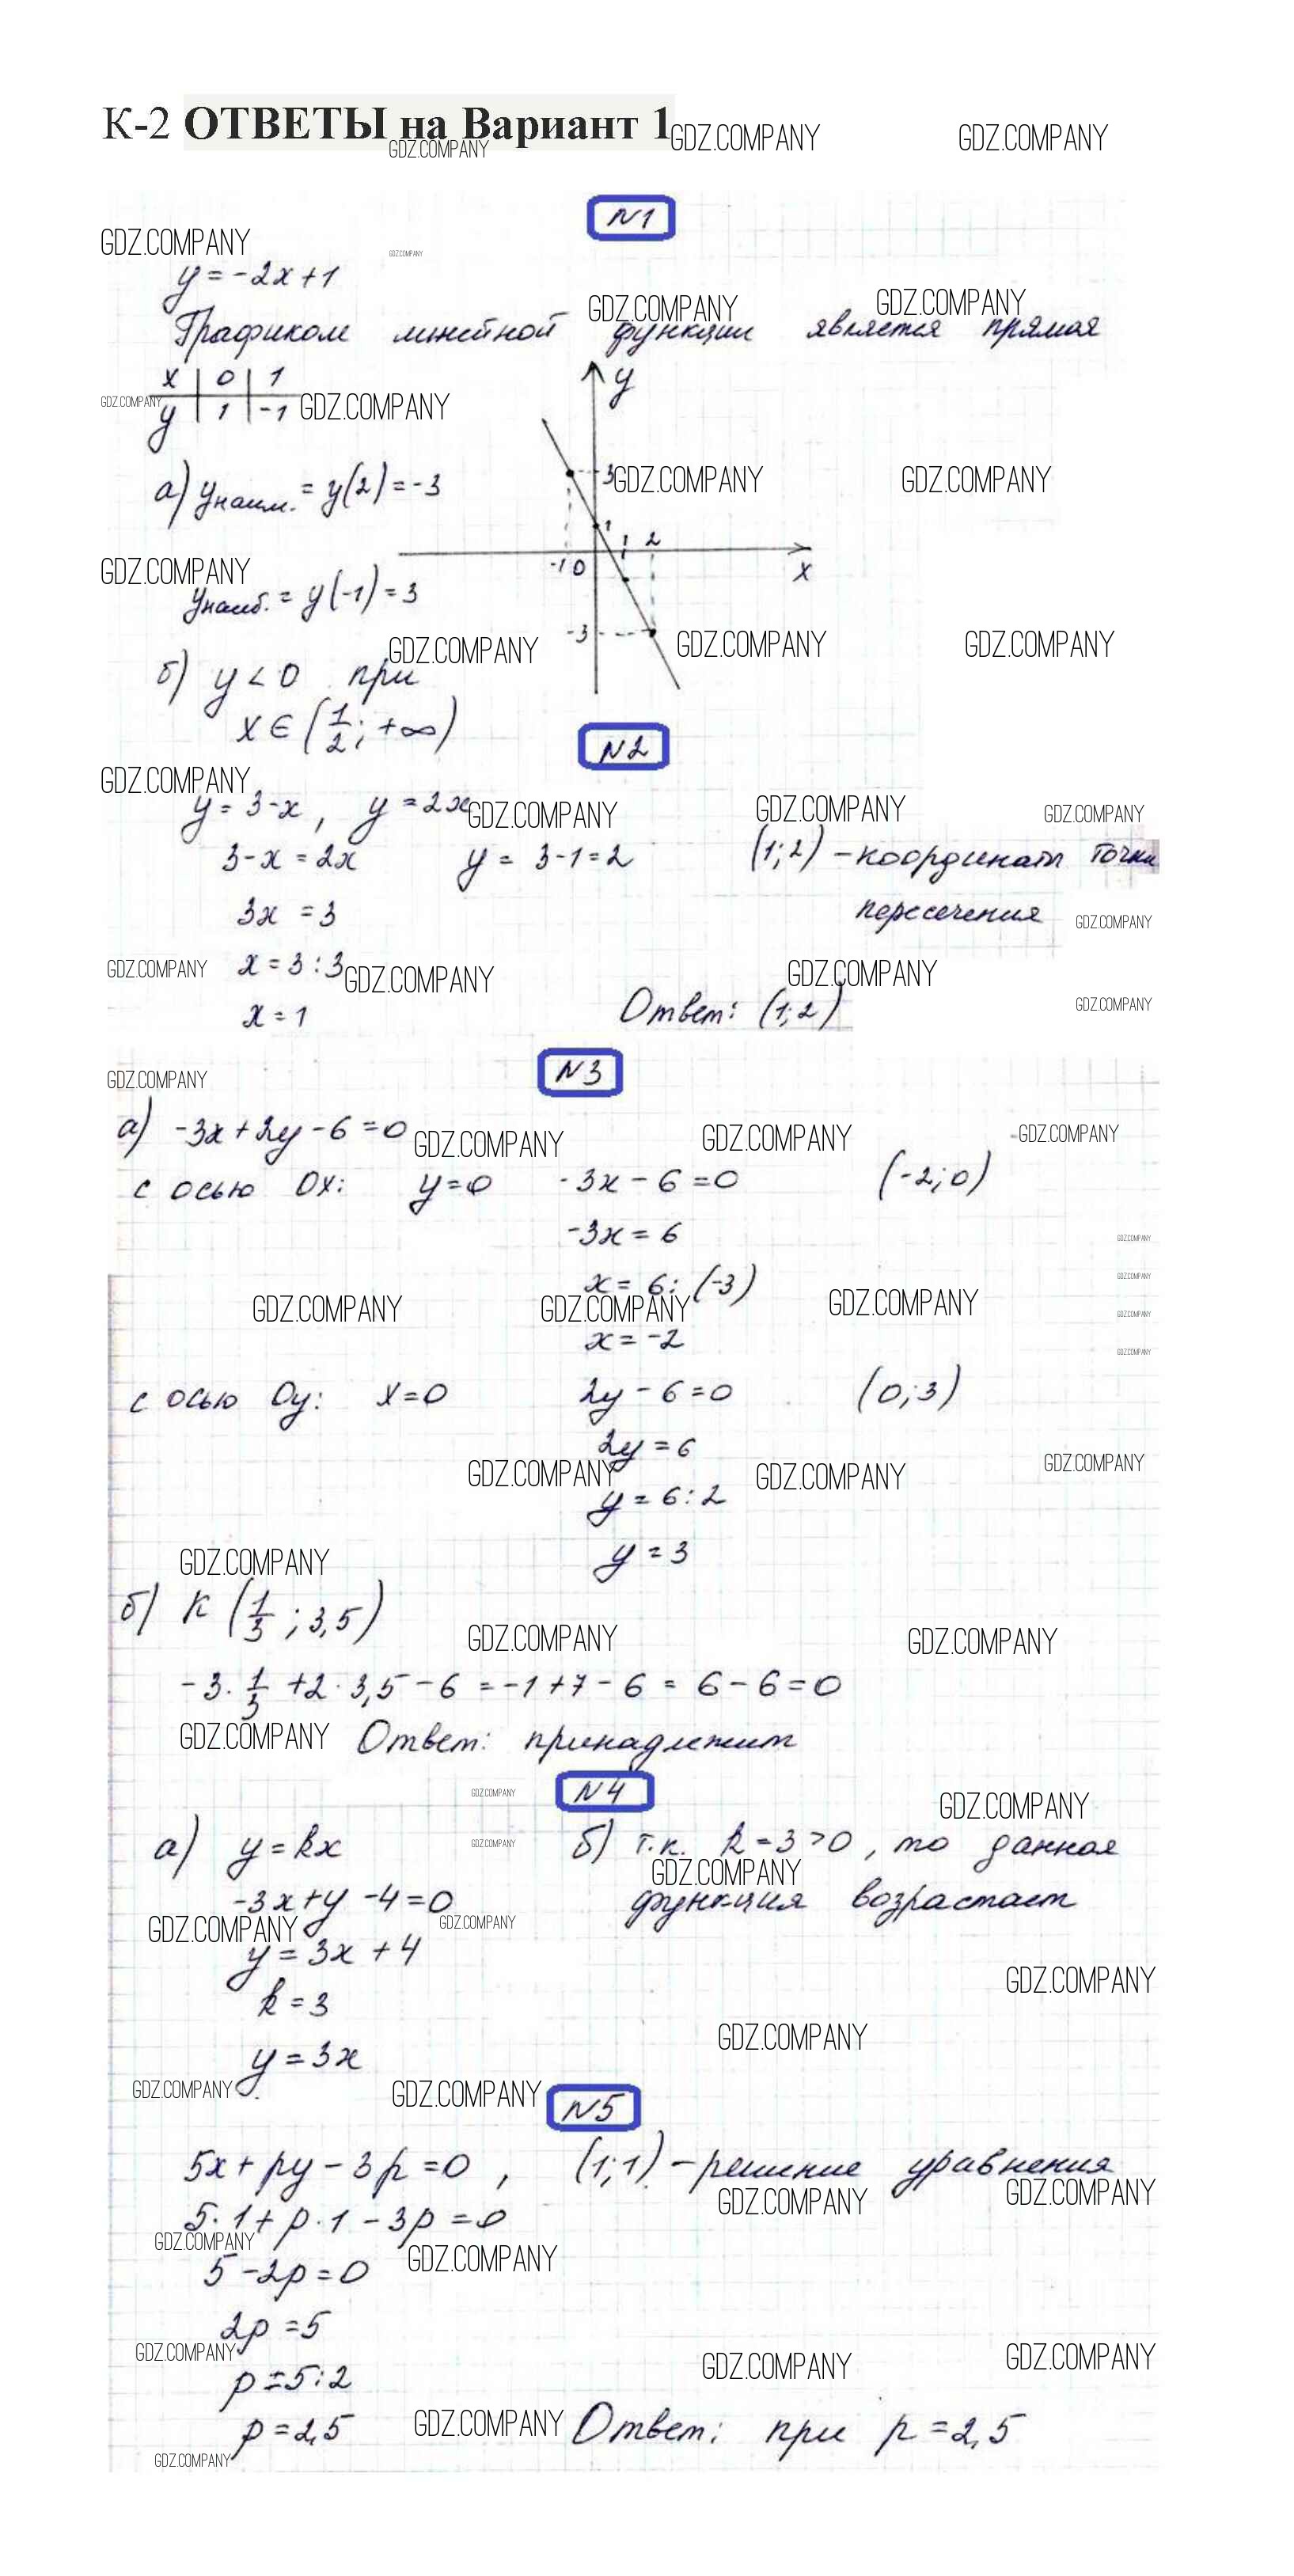 К-2 ОТВЕТЫ на Вариант 1
GDZ.COMPANY GDZ.COMPANY
GDZ.COMPANY
N1
GDZ.COMPANY GDZ.COMPANY
y = -2x + 1
GDZ.COMPANY GDZ.COMPANY
Графиком линейной функции является прямая
x | 0 | 1
y | 1 | -1
GDZ.COMPANY GDZ.COMPANY
y
3
GDZ.COMPANY GDZ.COMPANY
а) y наим. = y(2) = -3
1
1 2
-1 0
x
GDZ.COMPANY
y наиб. = y(-1) = 3
-3
GDZ.COMPANY GDZ.COMPANY GDZ.COMPANY
б) y < 0 при
x ∈ (1/2; +∞)
N2
GDZ.COMPANY
y = 3-x, y = 2x
GDZ.COMPANY GDZ.COMPANY GDZ.COMPANY
3-x = 2x y = 3-1 = 2 (1;2) - координат точки
3x = 3 пересечения
GDZ.COMPANY
GDZ.COMPANY x = 3:3 GDZ.COMPANY GDZ.COMPANY
x = 1 Ответ: (1;2)
GDZ.COMPANY
N3
GDZ.COMPANY
а) -3x + 2y - 6 = 0
GDZ.COMPANY GDZ.COMPANY GDZ.COMPANY
с осью Ox: y = 0 -3x - 6 = 0 (-2;0)
-3x = 6
GDZ.COMPANY
x = 6:(-3)
GDZ.COMPANY
GDZ.COMPANY GDZ.COMPANY GDZ.COMPANY
GDZ.COMPANY
x = -2
GDZ.COMPANY
с осью Oy: x = 0 2y - 6 = 0 (0;3)
2y = 6
GDZ.COMPANY GDZ.COMPANY GDZ.COMPANY
y = 6:2
y = 3
GDZ.COMPANY
б) K (1/3; 3,5)
GDZ.COMPANY GDZ.COMPANY
-3·1/3 + 2·3,5 - 6 = -1 + 7 - 6 = 6 - 6 = 0
GDZ.COMPANY Ответ: принадлежит
GDZ.COMPANY N4 GDZ.COMPANY
а) y = kx GDZ.COMPANY б) т.к. k = 3 > 0, то данная
GDZ.COMPANY
-3x + y - 4 = 0 функция возрастает
GDZ.COMPANY GDZ.COMPANY
y = 3x + 4
GDZ.COMPANY
k = 3
GDZ.COMPANY
y = 3x
GDZ.COMPANY GDZ.COMPANY
N5
5x + py - 3p = 0, (1;1) - решение уравнения
GDZ.COMPANY GDZ.COMPANY
5·1 + p·1 - 3p = 0
GDZ.COMPANY GDZ.COMPANY
5 - 2p = 0
2p = 5
GDZ.COMPANY GDZ.COMPANY GDZ.COMPANY
p = 5:2
p = 2,5 GDZ.COMPANY Ответ: при p = 2,5
GDZ.COMPANY